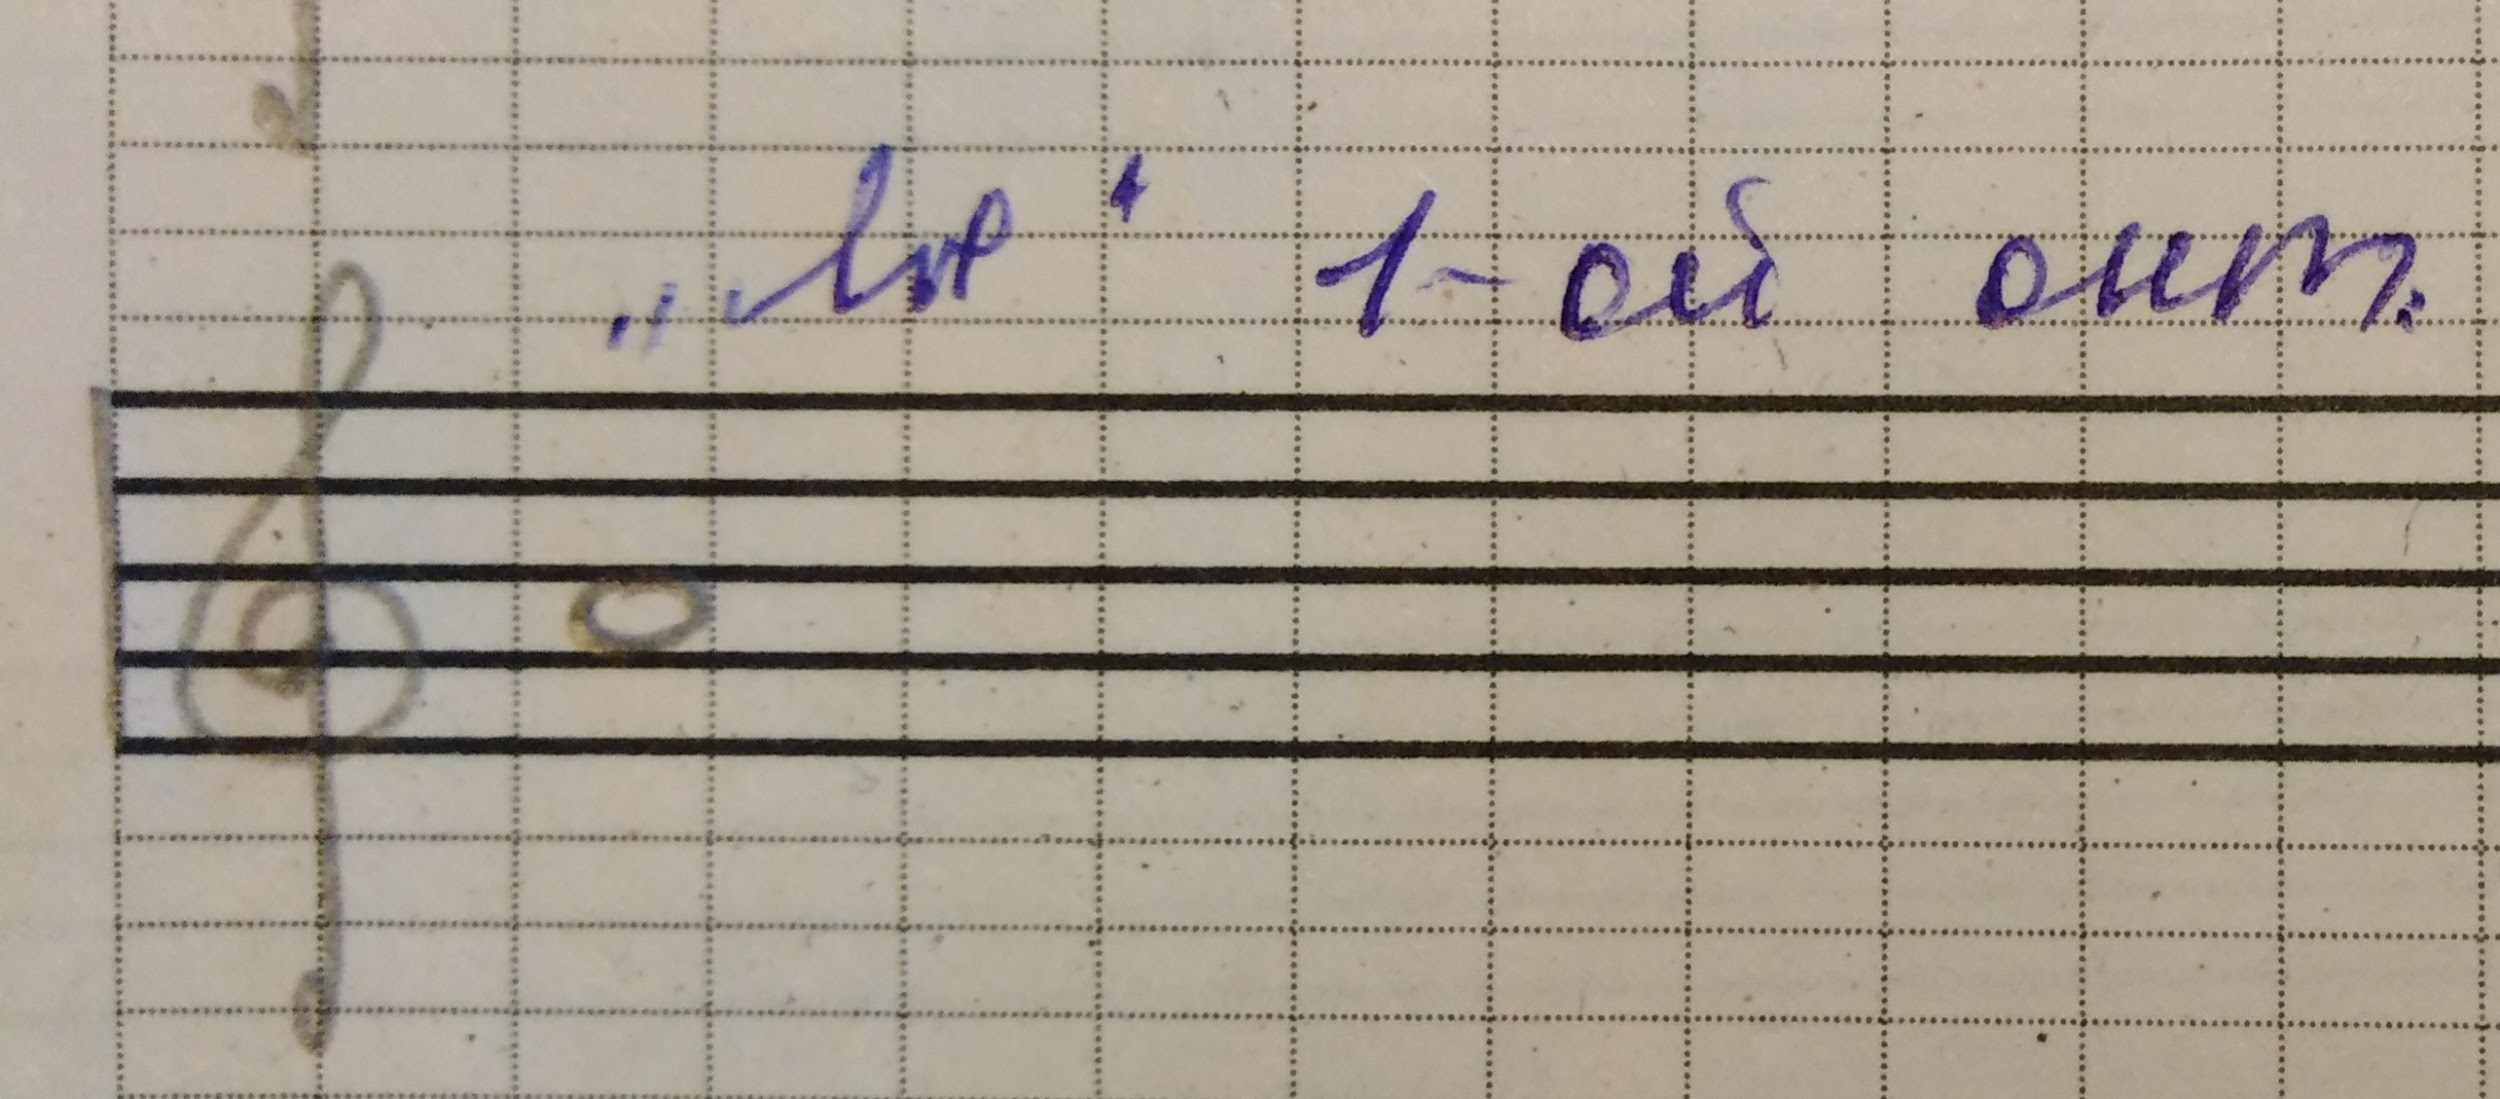 „ля“ 1-ой окт.